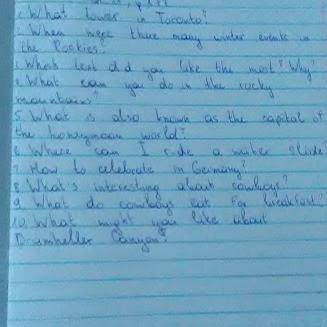 1. What tower in Toronto?
2. When were there many winter events in
the Rockies.
3. What text did you like the most? Why?
4. What can you do in the rocky
mountains?
5. What is also known as the capital of
the honeymoon world?
6. Where can I ride a water slide?
7. How to celebrate in Germany?
8. What's interesting about cowboys?
9. What do cowboys eat for breakfast?
10. What might you like about
Drumheller Canyon?